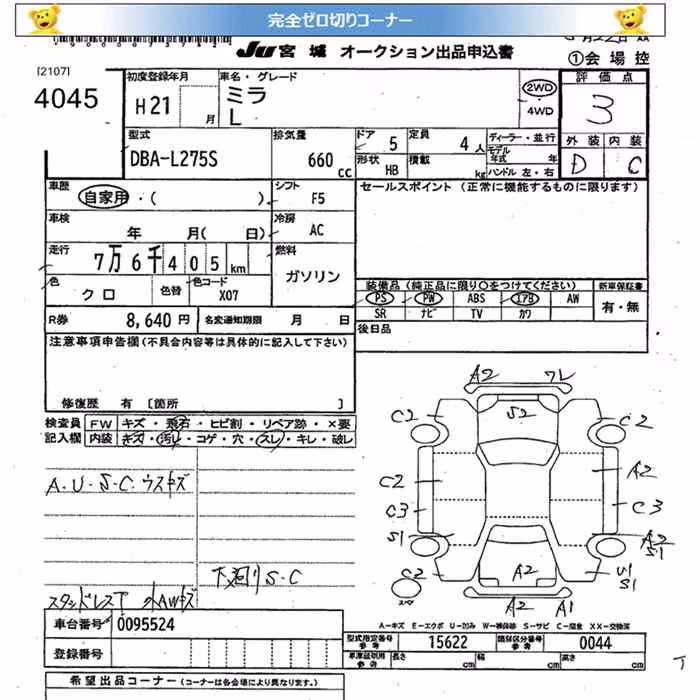 完全ゼロ切りコーナー
JU 宮城 オークション出品申込書
①会場控
[2107]
4045
初度登録年月
H21 月
車名・グレード
ミラ
L
2WD
4WD
評価点
3
型式
DBA-L275S
排気量
660 cc
ドア 5
定員 4 人
形状 HB
積載 kg
ディーラー・並行
モデル年式 年
ハンドル 左・右
外装 内装
D C
車歴
自家用・( )
シフト F5
セールスポイント (正常に機能するものに限ります)
車検
年 月( 日)
冷房 AC
走行
7万6千405km
燃料
ガソリン
色 クロ 色替 色コード X07
装備品 (純正品に限り○をつけてください)
新車保証書
PS PW ABS エアB AW
有・無
SR ナビ TV カワ
R券 8,640 円 名変通知期限 月 日
後日品
注意事項申告欄(不具合内容等は具体的に記入して下さい)
修復歴 有 [箇所 ]
検査員 FW キズ・飛石・ヒビ割・リペア跡・×要
記入欄 内装 キズ・汚レ・コゲ・穴・スレ・キレ・破レ
A2 フレ
C2 S2 C2
C2 A2
C3 C3
S1 A2
S1
C2 A2 U1
S1
スペア
A2 A1
A・U・S・C ウスキズ
下廻りS・C
スタッドレス下 外AWキズ
A-キズ E-エクボ U-凹み W-補修跡 S-サビ C-腐食 XX-交換済
車台番号 0095524
型式指定番号 参考 15622 類別区分番号 参考 0044
登録番号
車庫証明用 参考 長さ cm 幅 cm 高さ cm
希望出品コーナー (コーナーは各会場により異なります。)